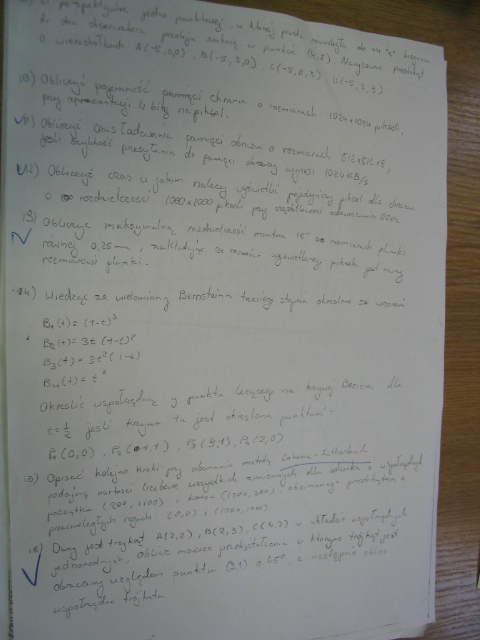 w perspektywie jedno punktowej, w której prosta równoległa do osi "z" biegnąca
do oka obserwatora przebija rzutnię w punkcie
o wierzchołkach A(-5,0,0), B(-5,3,0), C(-5,0,3), D(-5,3,3)
10) Obliczyć pojemność pamięci ekranu o rozmiarach 1024x1024 piksali,
przy reprezentacji 4 bity na piksel.
11) Obliczyć czas ładowania pamięci obrazu o rozmiarach 512x512x8,
jeśli szybkość przesyłania do pamięci obrazu wynosi 1024 KB/s
12) Obliczyć czas w jakim należy wyświetlić pojedyńczy piksel dla obrazu
o rozdzielczości 1000x1000 pikseli przy częstotliwości odświeżania
13) Obliczyć maksymalną rozdzielczość monitora 15" o rozmiarach plamki
równej 0,25mm, zakładając że rozmiar wyświetlanego piksela jest równy
rozmiarowi plamki.
14) Wiedząc że wielomiany Bernsteina trzeciego stopnia określone są wzorami
B1(t) = (1-t)³
B2(t) = 3t (1-t)²
B3(t) = 3t² (1-t)
B4(t) = t³
Określić współrzędną y punktu leżącego na krzywej Beziera dla
t=1/2 jeśli krzywa ta jest określona punktami:
P1(0,0), P2(1,1), P3( ,1), P4(2,0)
15) Opisać kolejne kroki przy obcinaniu metodą Cohena-Sutherlanda
podając wartości liczbowe wszystkich zmiennych dla odcinka o współrzędnych
początku (200, 1100) i końca ( ,200) obcinanego prostokątem o
przeciwległych rogach (0,0) i (1000,1000).
16) Dany jest trójkąt A(2,2), B(2,3), C(4,2) w układzie współrzędnych
jednorodnych, oblicz macierz przekształcenia w którym trójkąt jest
obracany względem punktu (2,1) o 45°, a następnie oblicz
współrzędne trójkąta.